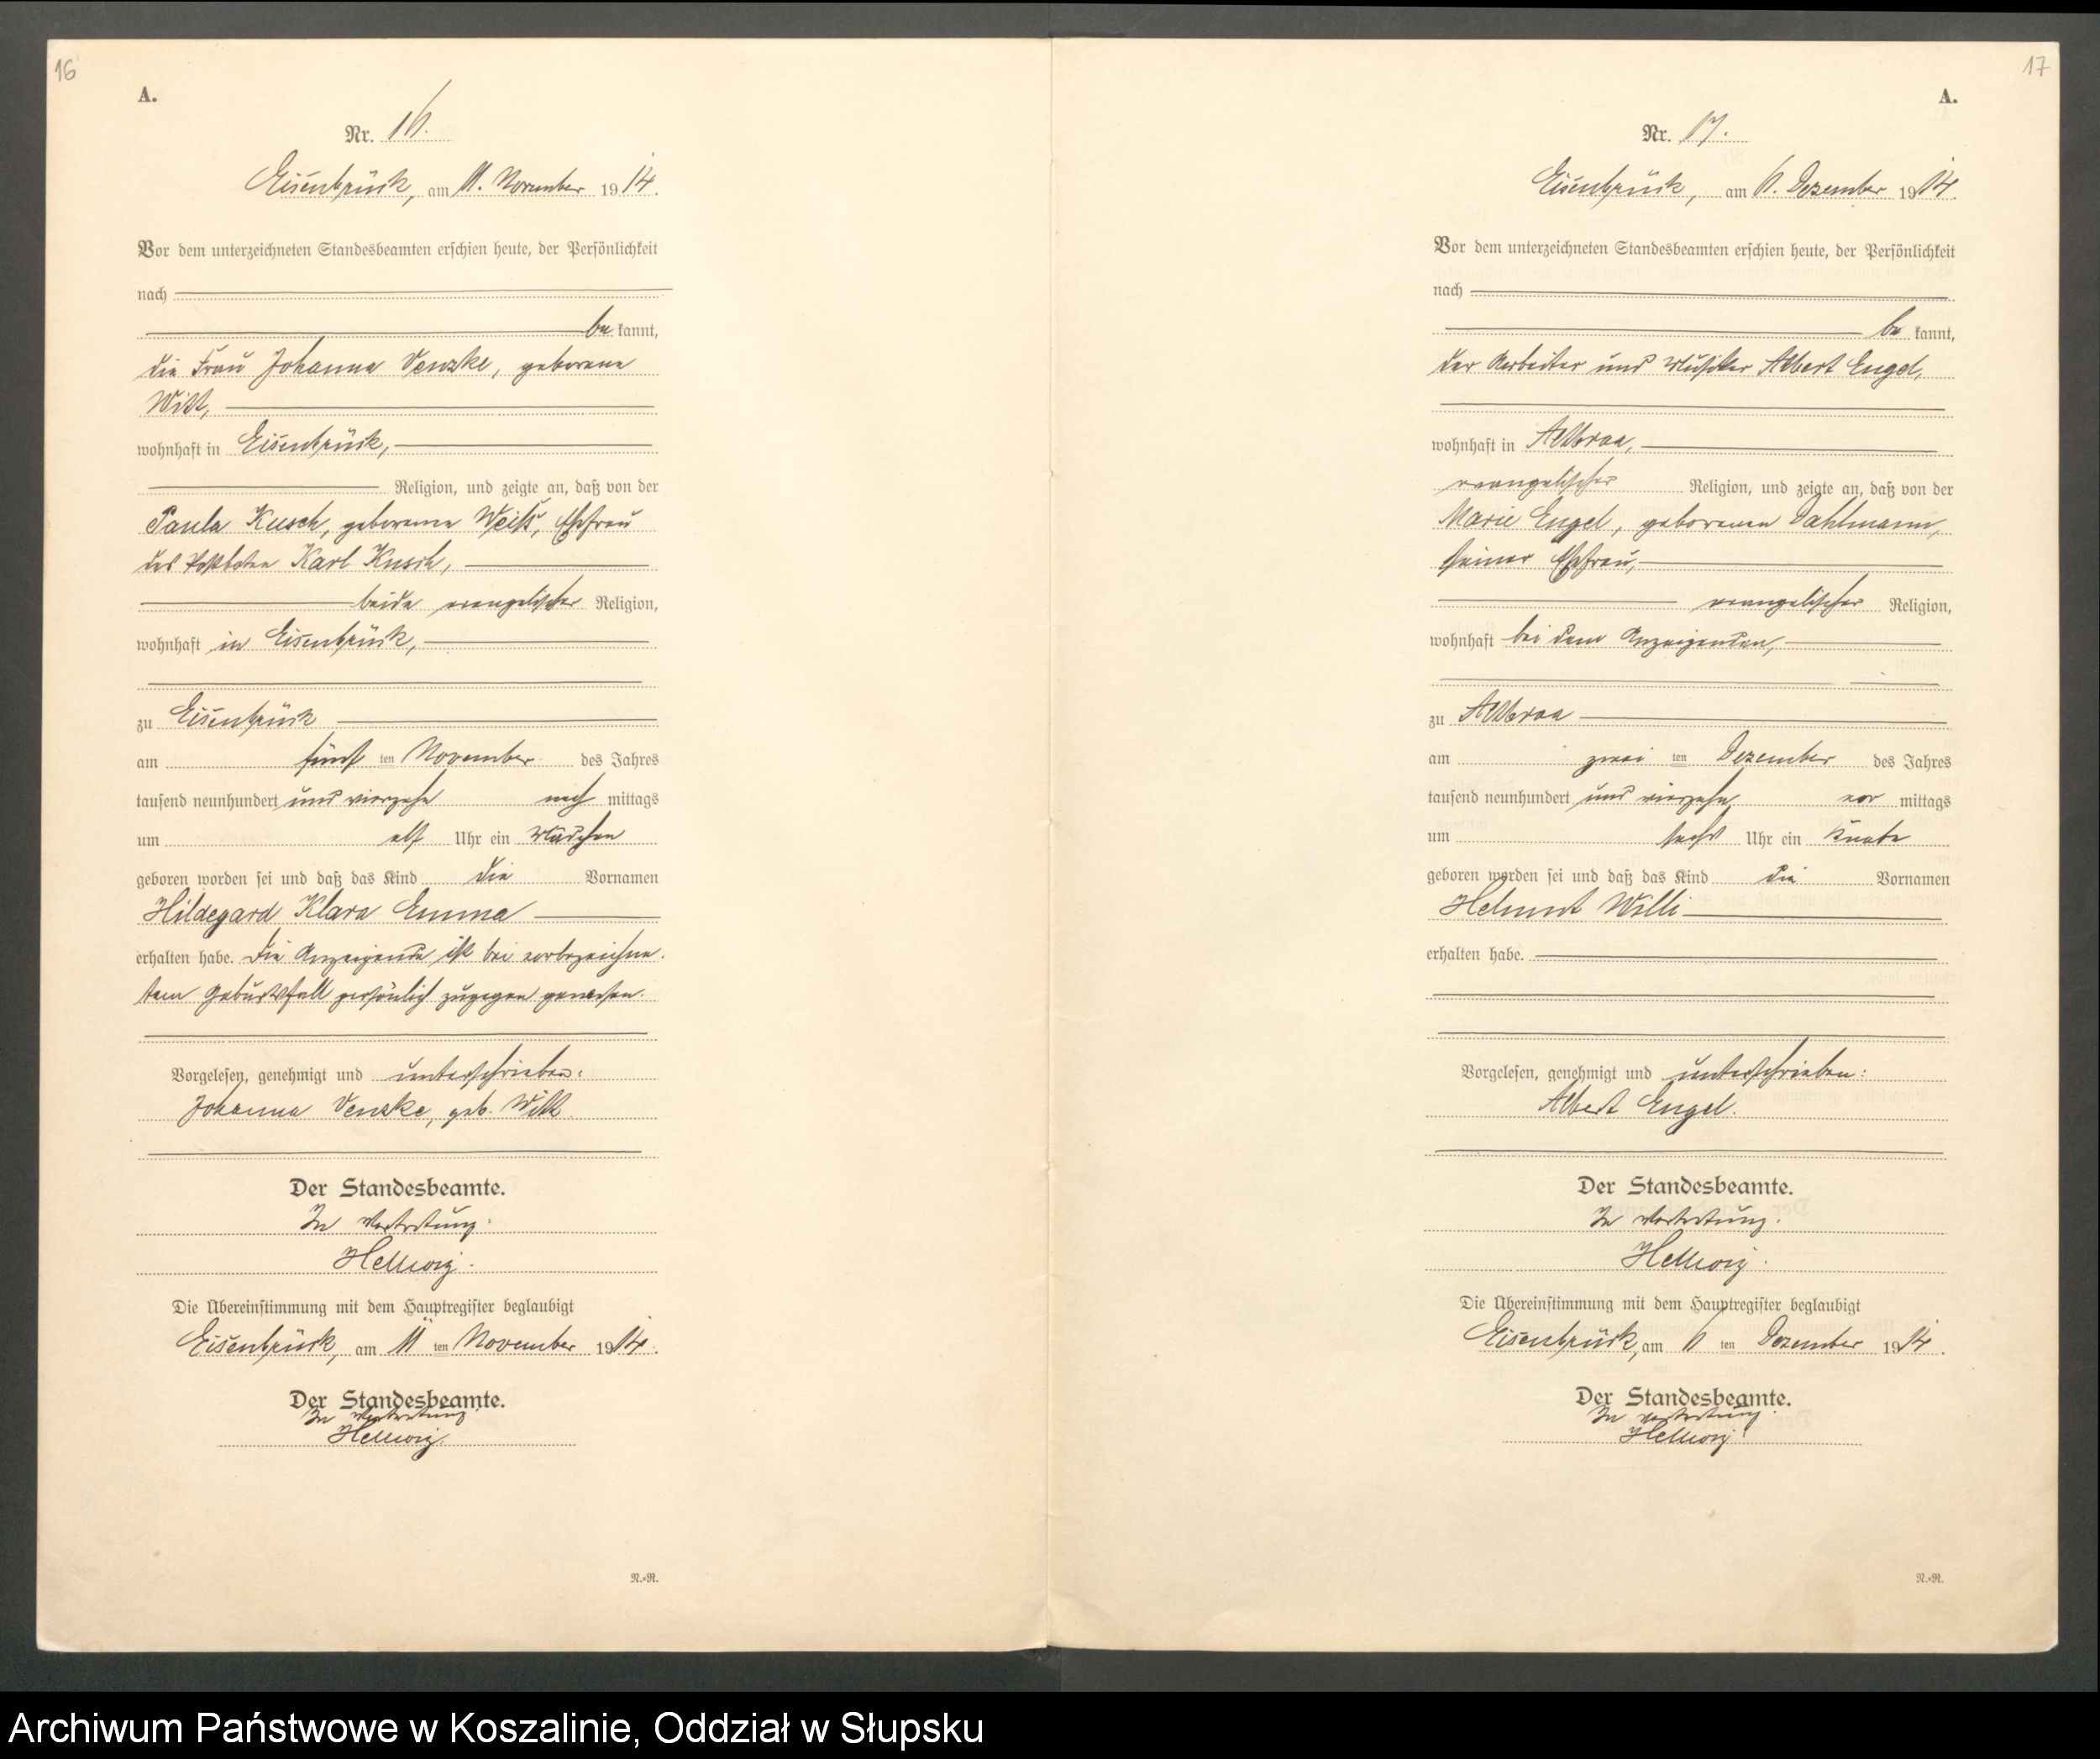 16
A.
Nr. 16.
Eisenbrück, am 11. November 1914.
Vor dem unterzeichneten Standesbeamten erschien heute, der Persönlichkeit
nach
be kannt,
die Frau Johanna Venzke, geborene
Witt,
wohnhaft in Eisenbrück,
Religion, und zeigte an, daß von der
Paula Kusch, geborene Weiß, Ehefrau
des Postboten Karl Kusch,
beide evangelischer Religion,
wohnhaft in Eisenbrück,
zu Eisenbrück
am fünf ten November des Jahres
tausend neunhundert und vierzehn nach mittags
um elf Uhr ein Mädchen
geboren worden sei und daß das Kind die Vornamen
Hildegard Klara Emma
erhalten habe. Die Anzeigende ist bei vorbezeichne-
tem Geburtsfall persönlich zugegen gewesen.
Vorgelesen, genehmigt und unterschrieben:
Johanna Venzke, geb. Witt
Der Standesbeamte.
In Vertretung:
Hellwig.
Die Übereinstimmung mit dem Hauptregister beglaubigt
Eisenbrück, am 11 ten November 1914.
Der Standesbeamte.
In Vertretung
Hellwig.
R.=R.
17
A.
Nr. 17.
Eisenbrück, am 6. Dezember 1914.
Vor dem unterzeichneten Standesbeamten erschien heute, der Persönlichkeit
nach
be kannt,
der Arbeiter und Musiker Albert Engel,
wohnhaft in Altbraa,
evangelischer Religion, und zeigte an, daß von der
Marie Engel, geborenen Dahlmann,
seiner Ehefrau,
evangelischer Religion,
wohnhaft bei dem Anzeigenden,
zu Altbraa
am zwei ten Dezember des Jahres
tausend neunhundert und vierzehn vor mittags
um sechs Uhr ein Knabe
geboren worden sei und daß das Kind die Vornamen
Helmut Willi
erhalten habe.
Vorgelesen, genehmigt und unterschrieben:
Albert Engel.
Der Standesbeamte.
In Vertretung.
Hellwig.
Die Übereinstimmung mit dem Hauptregister beglaubigt
Eisenbrück, am 6 ten Dezember 1914.
Der Standesbeamte.
In Vertretung.
Hellwig
R.=R.
Archiwum Państwowe w Koszalinie, Oddział w Słupsku